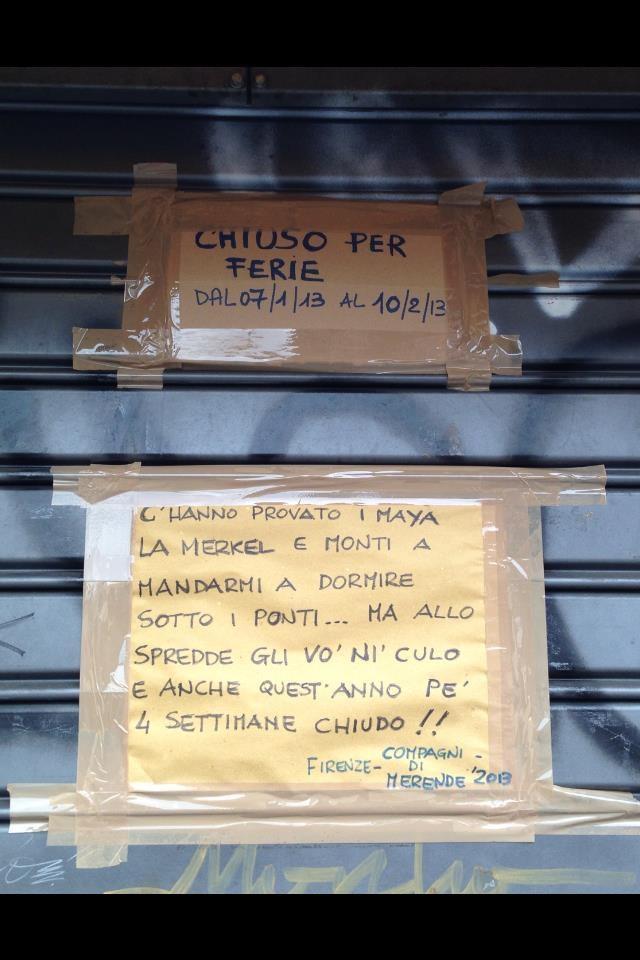 CHIUSO PER
FERIE
DAL 07/1/13 AL 10/2/13
C'HANNO PROVATO I MAYA
LA MERKEL E MONTI A
MANDARMI A DORMIRE
SOTTO I PONTI... MA ALLO
SPREDDE GLI VO' NI' CULO
E ANCHE QUEST'ANNO PE'
4 SETTIMANE CHIUDO !!
FIRENZE - COMPAGNI -
DI
MERENDE '2013